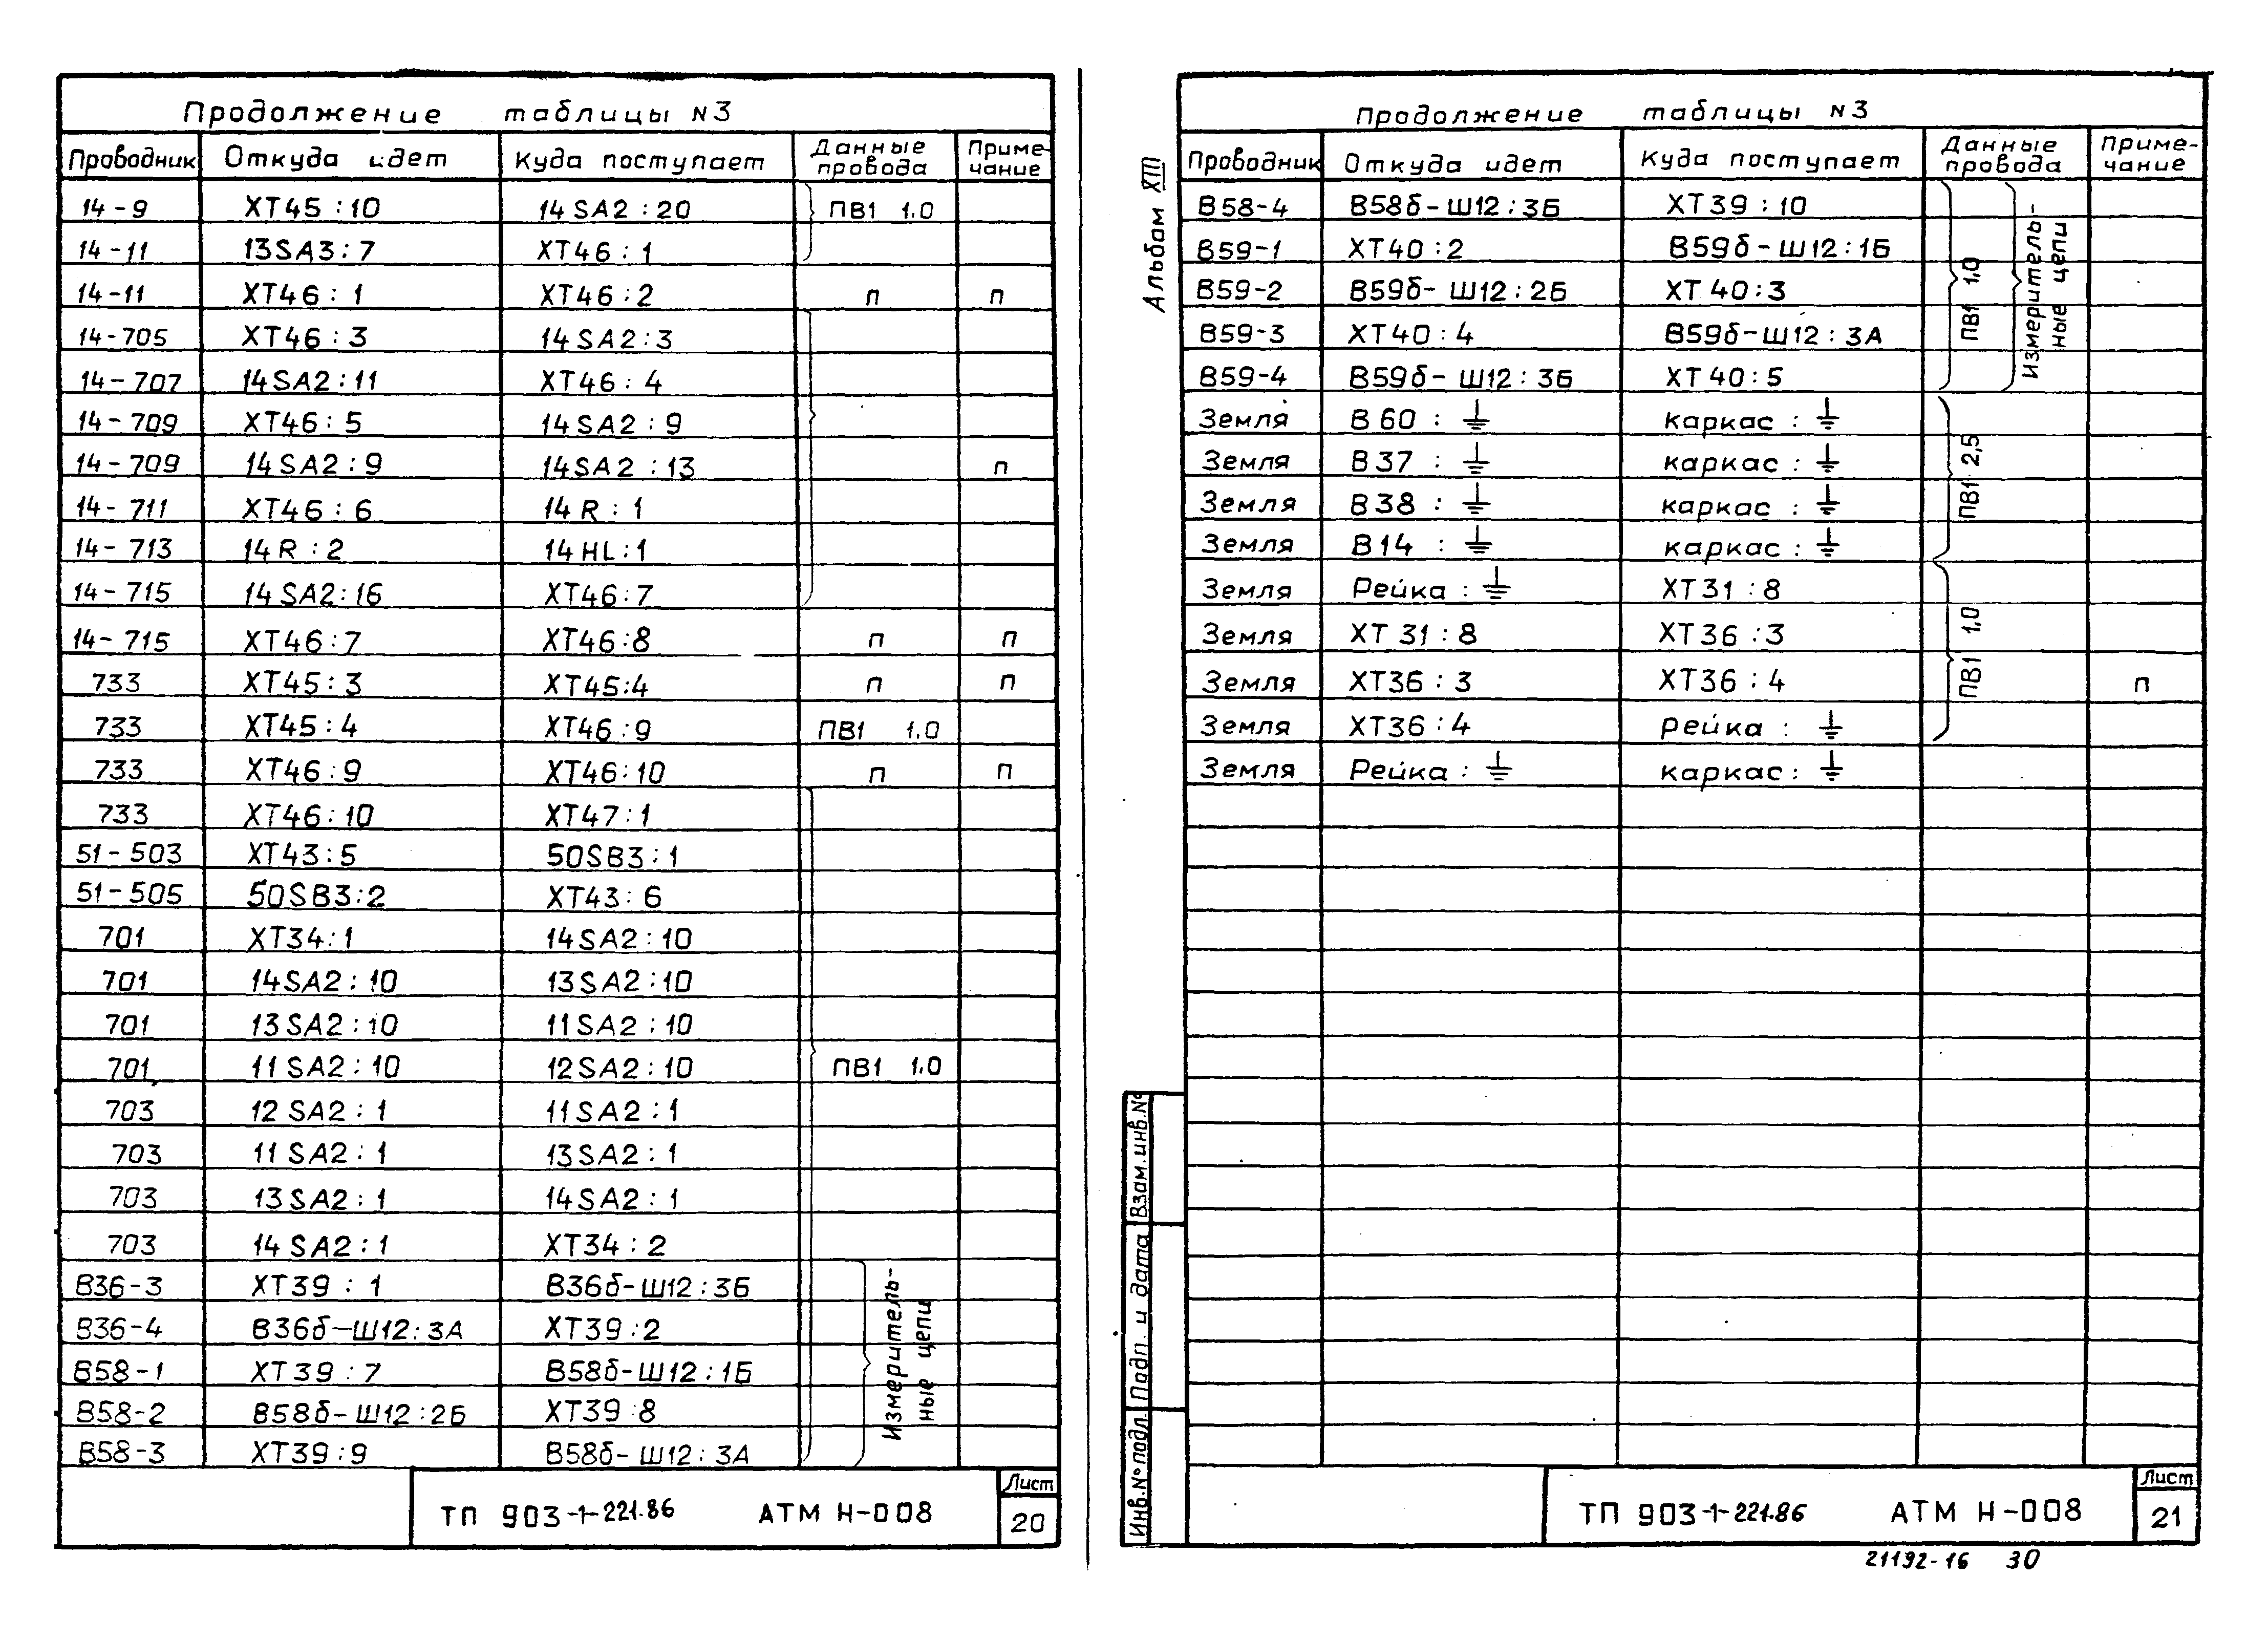 Продолжение таблицы N3
Проводник Откуда идет Куда поступает Данные провода Приме-чание
14-9 XT45:10 14SA2:20 ПВ1 1.0
14-11 13SA3:7 XT46:1
14-11 XT46:1 XT46:2 п п
14-705 XT46:3 14SA2:3
14-707 14SA2:11 XT46:4
14-709 XT46:5 14SA2:9
14-709 14SA2:9 14SA2:13 п
14-711 XT46:6 14R:1
14-713 14R:2 14HL:1
14-715 14SA2:16 XT46:7
14-715 XT46:7 XT46:8 п п
733 XT45:3 XT45:4 п п
733 XT45:4 XT46:9 ПВ1 1.0
733 XT46:9 XT46:10 п п
733 XT46:10 XT47:1
51-503 XT43:5 50SB3:1
51-505 50SB3:2 XT43:6
701 XT34:1 14SA2:10
701 14SA2:10 13SA2:10
701 13SA2:10 11SA2:10
701 11SA2:10 12SA2:10 ПВ1 1.0
703 12SA2:1 11SA2:1
703 11SA2:1 13SA2:1
703 13SA2:1 14SA2:1
703 14SA2:1 XT34:2
В36-3 XT39:1 В36б-Ш12:3Б
В36-4 В36б-Ш12:3А XT39:2
В58-1 XT39:7 В58б-Ш12:1Б
В58-2 В58б-Ш12:2Б XT39:8
В58-3 XT39:9 В58б-Ш12:3А
Измеритель-
ные цепи
ТП 903-1-221.86 АТМ Н-008
Лист
20
Альбом XIII
Продолжение таблицы N3
Проводник Откуда идет Куда поступает Данные провода Приме-чание
В58-4 В58б-Ш12:3Б XT39:10
В59-1 XT40:2 В59б-Ш12:1Б
В59-2 В59б-Ш12:2Б XT40:3
В59-3 XT40:4 В59б-Ш12:3А
В59-4 В59б-Ш12:3Б XT40:5
ПВ1 1,0
Измеритель-
ные цепи
Земля В60:⏚ каркас:⏚
Земля В37:⏚ каркас:⏚
Земля В38:⏚ каркас:⏚
Земля В14:⏚ каркас:⏚
ПВ1 2,5
Земля Рейка:⏚ XT31:8
Земля XT31:8 XT36:3
Земля XT36:3 XT36:4 п
Земля XT36:4 рейка:⏚
ПВ1 1,0
Земля Рейка:⏚ каркас:⏚
Взам.инв.№
Подп. и дата
Инв.№подл.
ТП 903-1-221.86 АТМ Н-008
Лист
21
21192-16 30